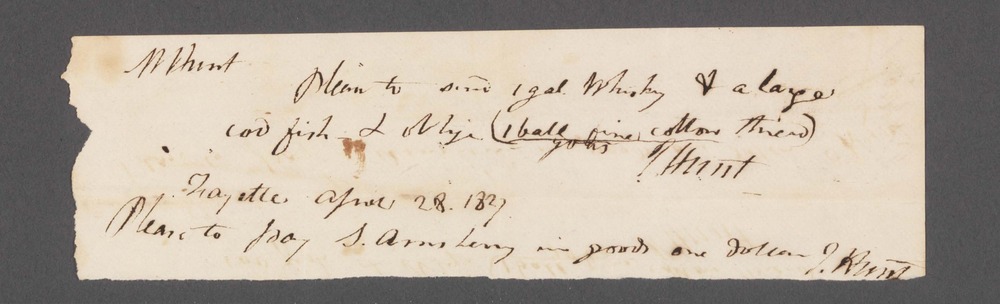 Mr Hunt
Please to send 1 gal. Whisky & a large
cod fish & oblige (1 ball fine cotton thread)
yours J Hunt
Fayette April 28. 1837
Please to pay S. Armsberry in goods one dollar J. Hunt